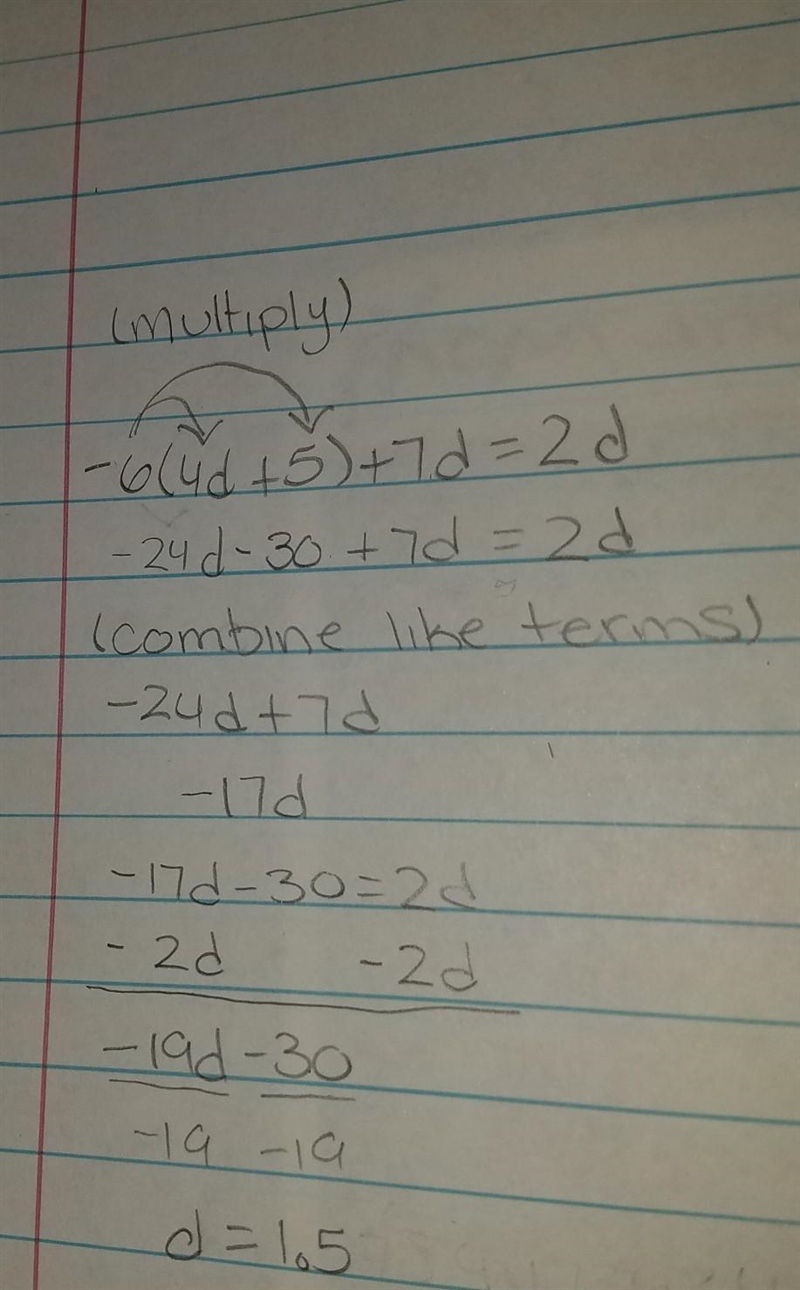 (multiply)
-6(4d+5)+7d=2d
-24d-30+7d=2d
(combine like terms)
-24d+7d
-17d
-17d-30=2d
-2d -2d
-19d-30
-19 -19
d=1.5